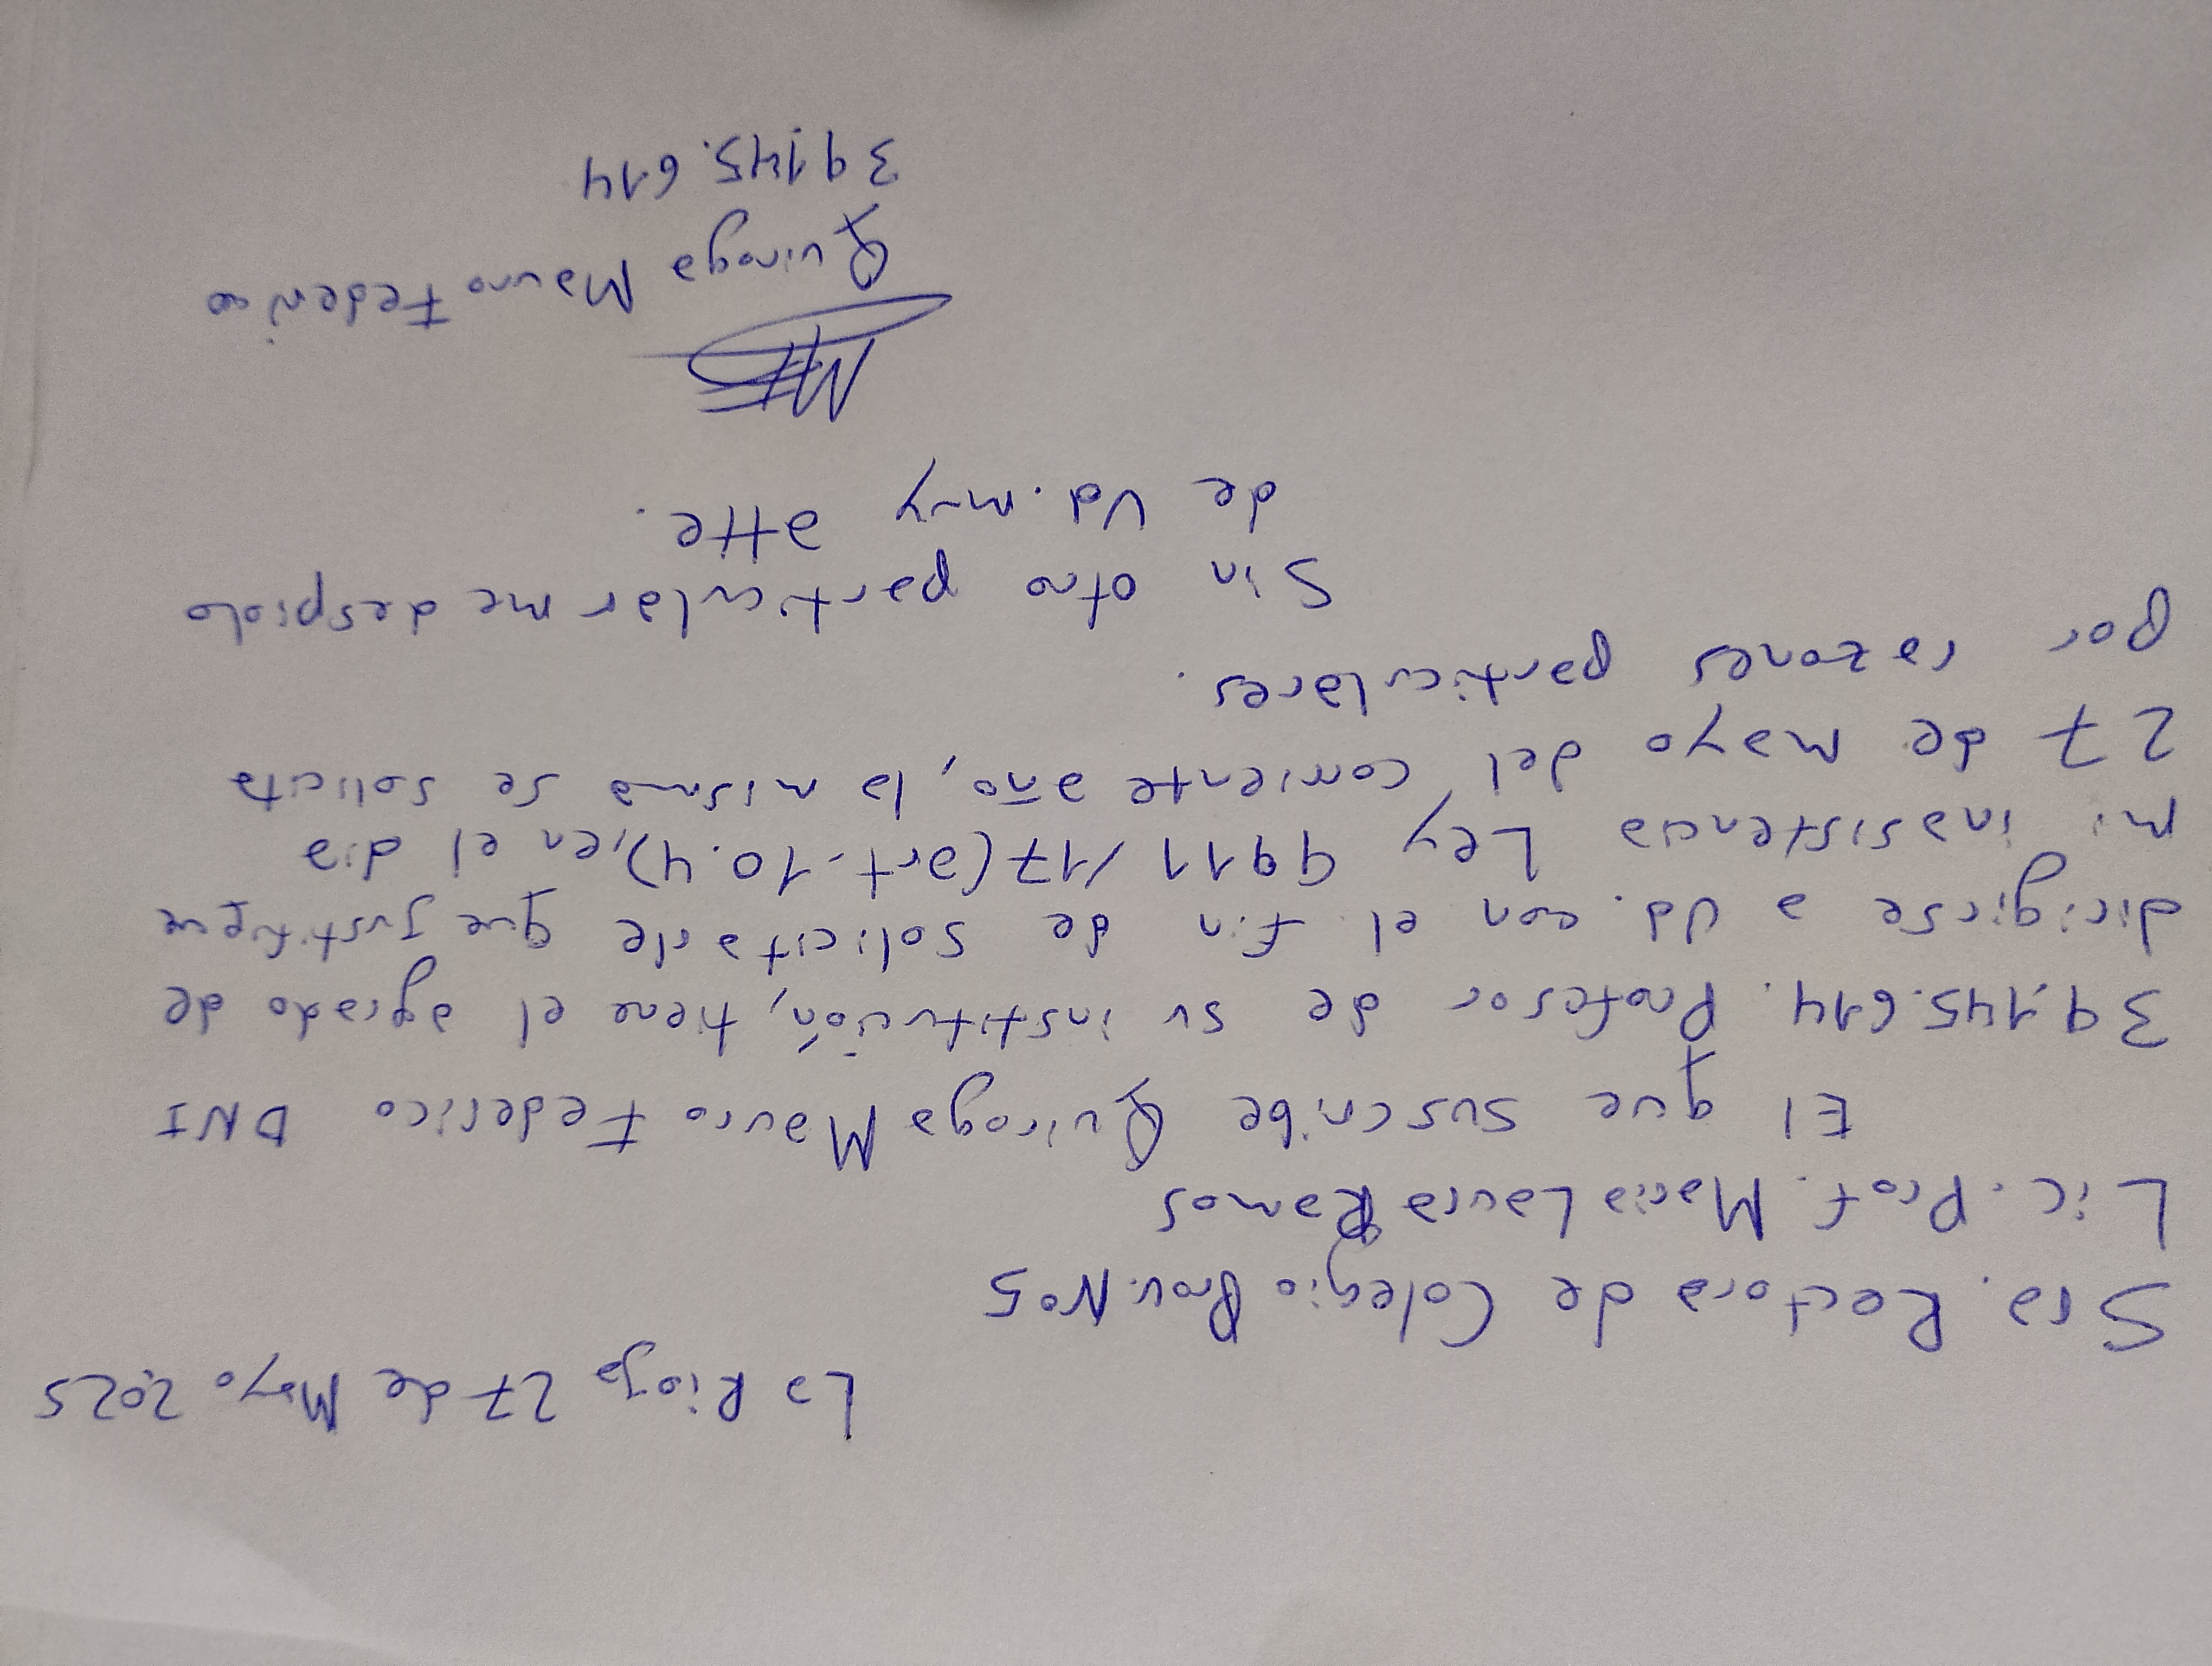 La Rioja 27 de Mayo 2025
Sra. Rectora de Colegio Prov. No5
Lic. Prof. Maria Laura Ramos
El que suscribe Quiroga Mauro Federico DNI
39.145.614. Profesor de su institución, tiene el agrado de
dirigirse a Ud. con el fin de solicitarle que Justifique
mi inasistencia Ley 9911/17 (art. 10.4), en el dia
27 de mayo del corriente año, la misma se solicita
por razones particulares.
Sin otro particular me despido
de Ud. muy atte.
Quiroga Mauro Federico
39.145.614